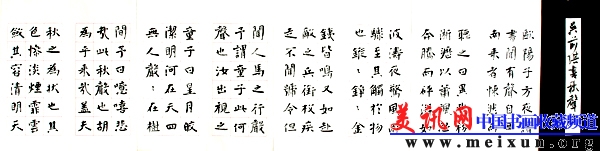 歐陽子方夜讀
書聞有聲自西
南來者悚然而
聽之曰異哉初
淅瀝以蕭颯忽
奔騰而砰湃如
波濤夜驚風雨
驟至其觸於物
也鏦=錚=金
鐵皆鳴又如赴
敵之兵銜枚疾
走不聞號令但
聞人馬之行聲
予謂童子此何
聲也汝出視之
童子曰星月皎
潔明河在天四
無人聲=在樹
間予曰噫嘻悲
哉此秋聲也胡
為乎來哉蓋夫
秋之為狀也其
色慘淡煙霏雲
斂其容清明天
美讯网 中国书画收藏频道
www.meixun.cn